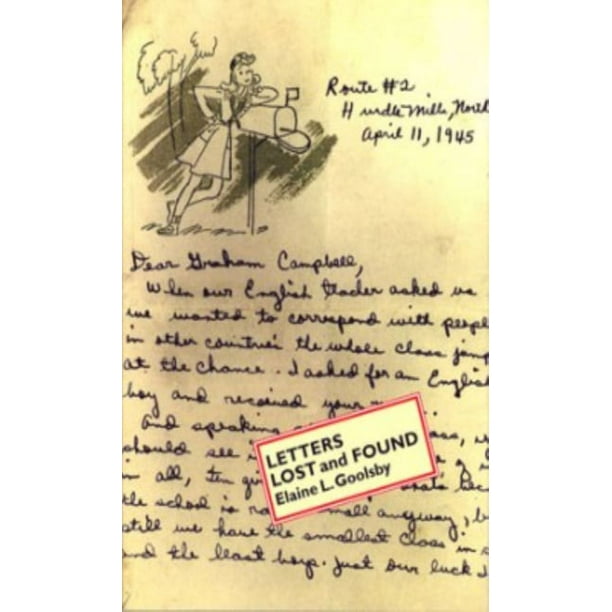 Route #2
Hurdle Mills, North
April 11, 1945
Dear Graham Campbell,
When our English teacher asked us
we wanted to correspond with people
in other countries the whole class jump
at the chance. I asked for an English
boy and received your
And speaking
should see
in all, ten
the school is small anyway, b
still we have the smallest class in
and the least boys. Just our luck I
LETTERS
LOST and FOUND
Elaine L. Goolsby